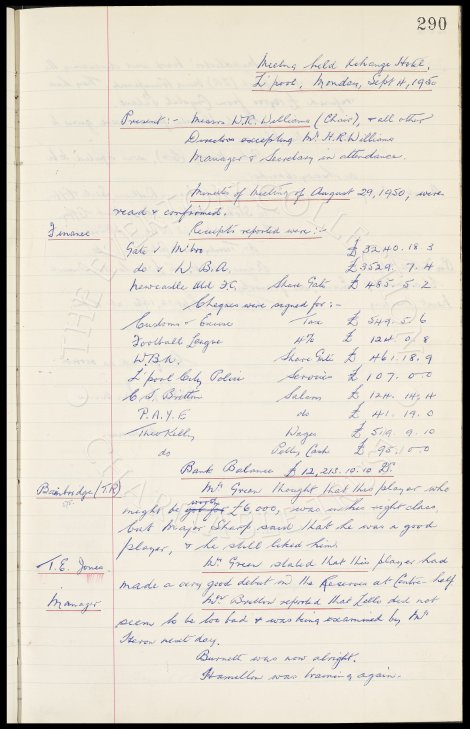 290
Meeting held Exchange Hotel,
L'pool, Monday, Sept 4, 1950
Present :- Messrs W.R. Williams (Chair), & all other
Directors excepting Mr H.R. Williams
Manager & Secretary in attendance.
Minutes of Meeting of August 29, 1950, were
read & confirmed.
Finance Receipts reported were :-
Gate v M'bro £3240. 18. 3
do v W.B.A. £3529. 7. 4
Newcastle Utd F.C. Share Gate £485. 5. 2
Cheques were signed for :-
Customs & Excise Tax £549. 5. 6
Football League 4% £124. 0. 8
W.B.A. Share Gate £461. 18. 9
L'pool City Police Services £107. 0. 0
C.S. Britton Salary £124. 14. 4
P.A.Y.E do £41. 19. 0
Theo Kelly Wages £519. 9. 10
do Petty Cash £95. 0. 0
Bank Balance £12,213. 10. 10
Bainbridge (T.R) Mr Green thought that this player who
might be worth £6,000, was in her right class,
but Major Sharp said that he was a good
player, & he still liked him.
T.E. Jones Mr Green stated that this player had
made a very good debut in the Reserves at Centre-half
Manager Mr Britton reported that Potts did not
seem to be too bad & was being examined by Mr
Heron next day.
Burnett was now alright.
Hamilton was training again.